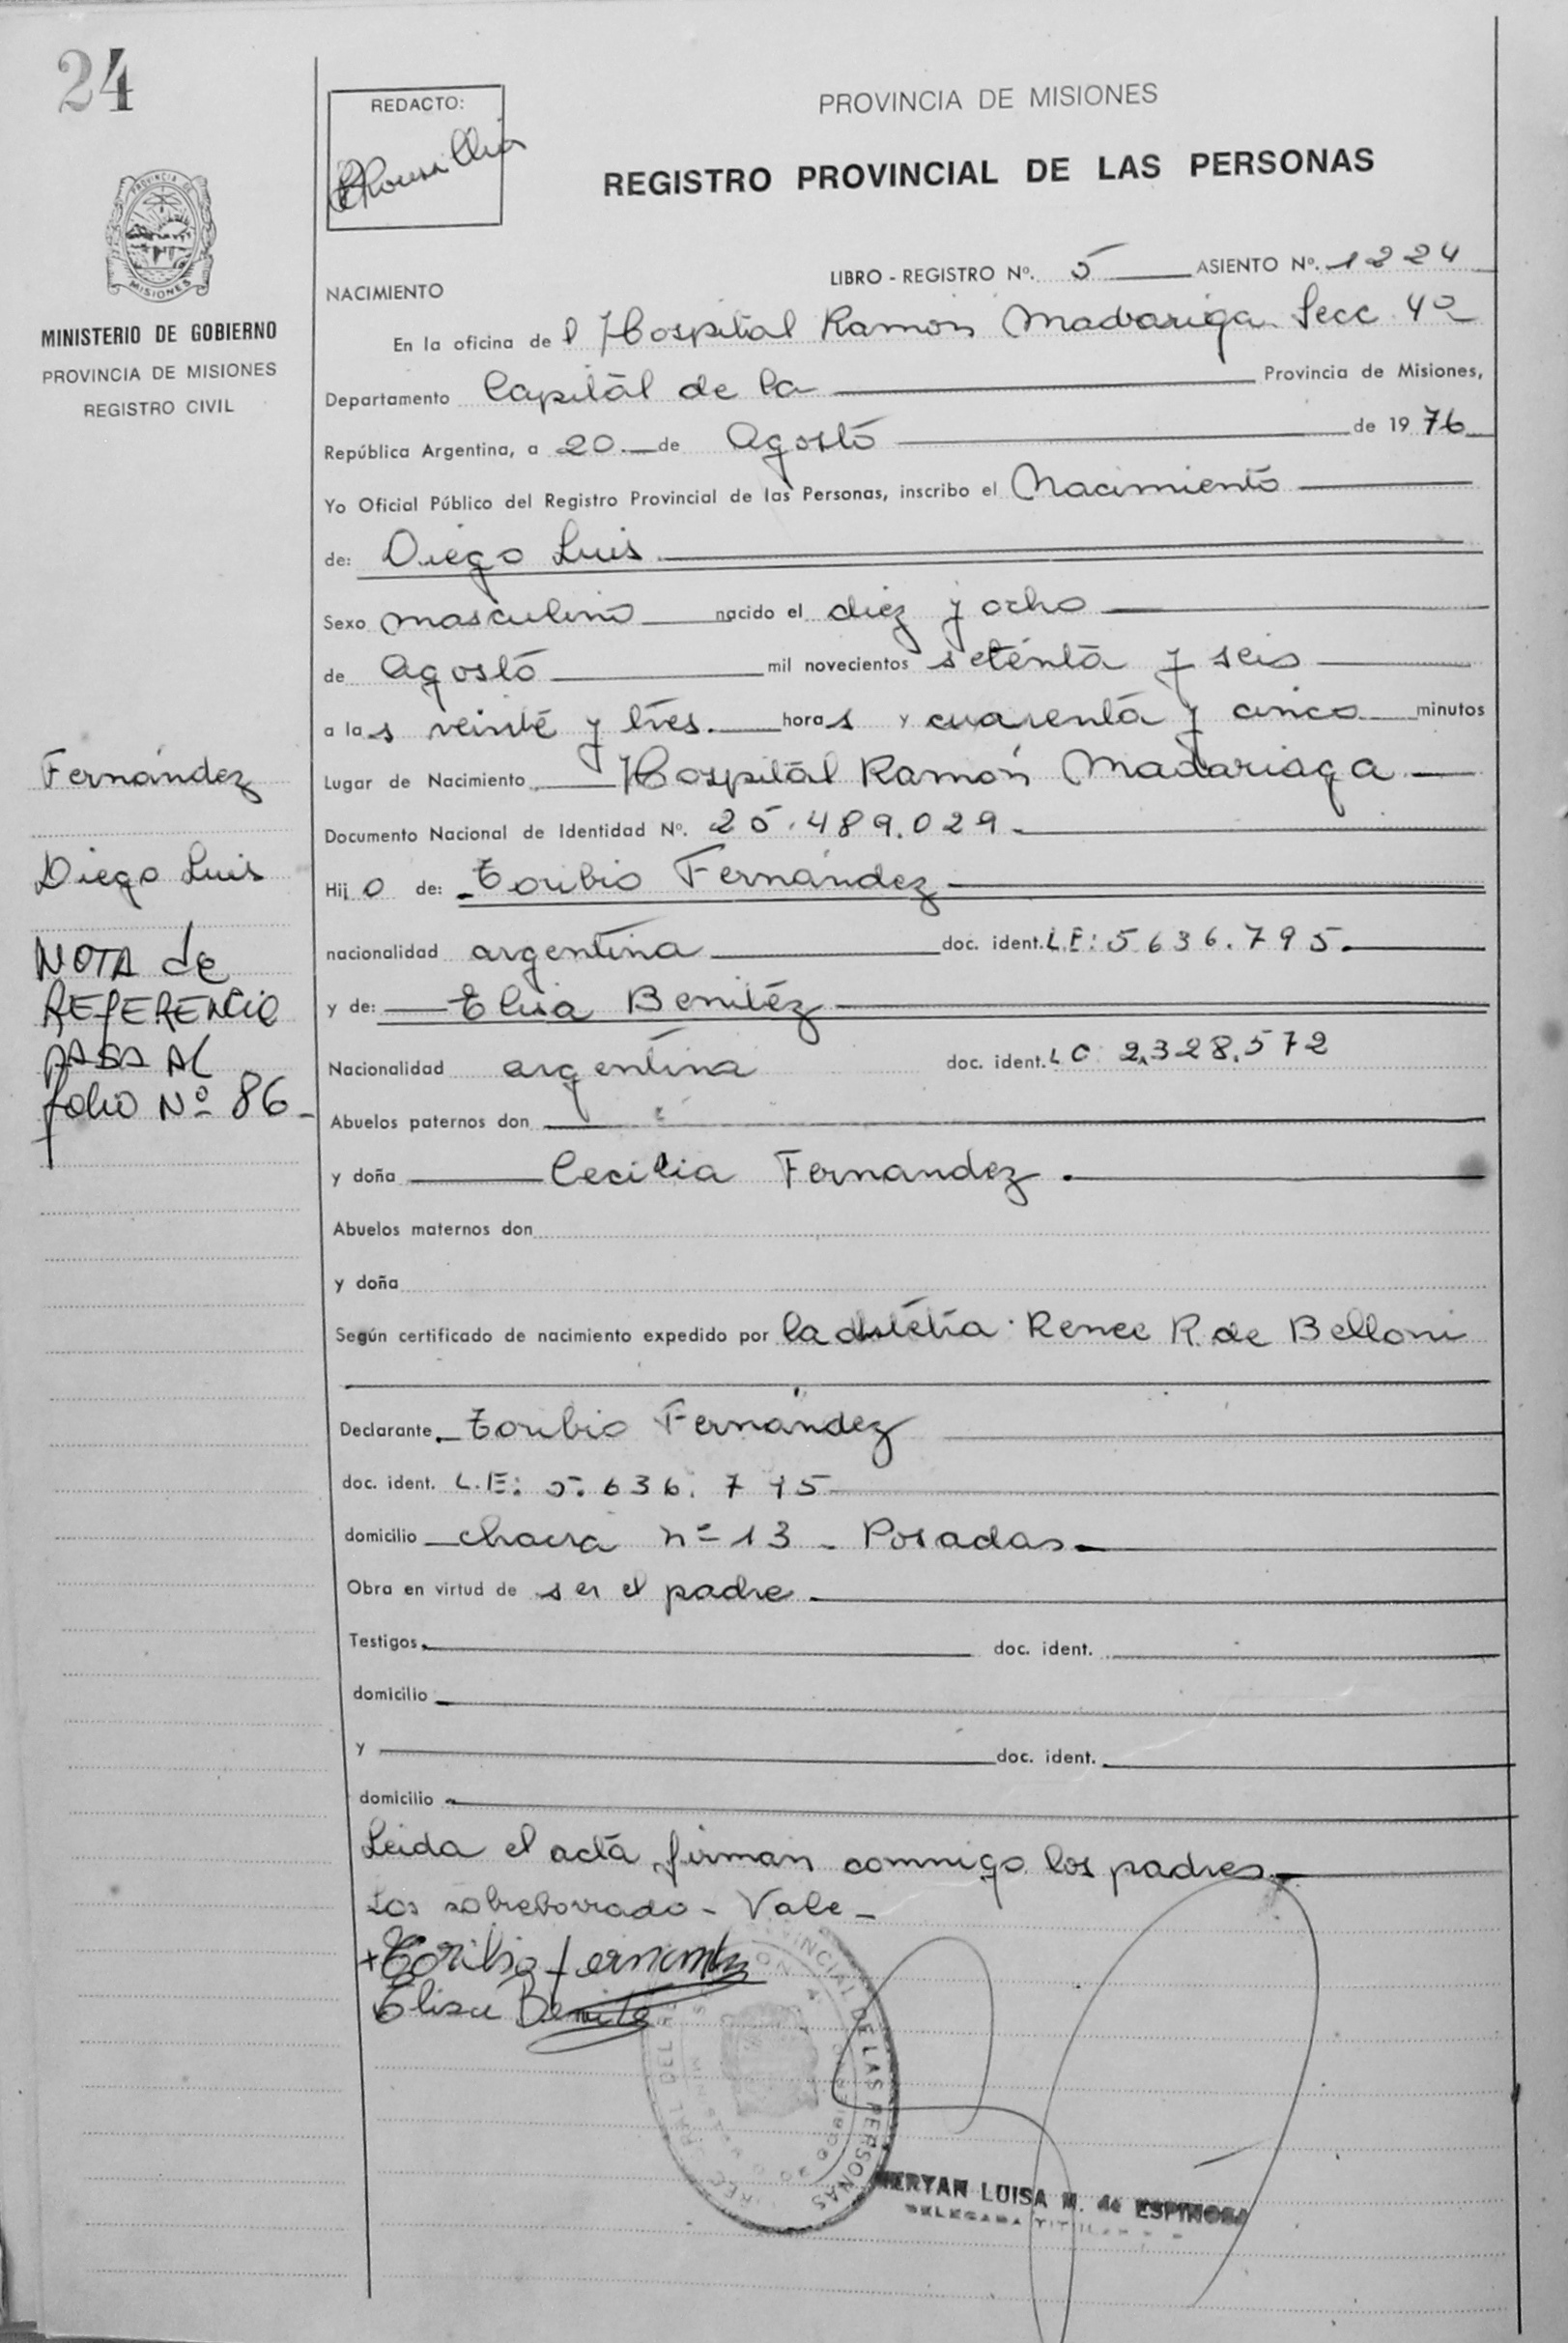 24
REDACTO:
PROVINCIA DE MISIONES
REGISTRO PROVINCIAL DE LAS PERSONAS
PROVINCIA DE
MISIONES
MINISTERIO DE GOBIERNO
PROVINCIA DE MISIONES
REGISTRO CIVIL
LIBRO - REGISTRO Nº. 5 ASIENTO Nº. 1224
NACIMIENTO
En la oficina de l Hospital Ramón Madariga Secc 4º
Departamento Capital de la Provincia de Misiones,
República Argentina, a 20 de Agosto de 1976
Yo Oficial Público del Registro Provincial de las Personas, inscribo el Nacimiento
de: Diego Luis
Sexo masculino nacido el diez y ocho
de Agosto mil novecientos setenta y seis
a las veinte y tres. horas y cuarenta y cinco minutos
Lugar de Nacimiento Hospital Ramón Madariaga
Documento Nacional de Identidad Nº. 25.489.029
Hijo de: Toribio Fernández
nacionalidad argentina doc. ident. L.E: 5636.795.
y de: Elisa Benitez
Nacionalidad argentina doc. ident. LC 2.328.572
Abuelos paternos don
y doña Cecilia Fernandez
Abuelos maternos don
y doña
Según certificado de nacimiento expedido por la Renee R. de Belloni
Declarante Toribio Fernández
doc. ident. L.E: 5.636.795
domicilio chacra nº 13 - Posadas
Obra en virtud de ser el padre
Testigos doc. ident.
domicilio
y doc. ident.
domicilio
Leida el acta firman conmigo los padres
Los sobreborrado - Vale -
+ Toribio fernandez
Elisa Benitez
Fernández
Diego Luis
NOTA de
REFERENCIA
PASA AL
folio Nº 86 -
PROVINCIAL DE LAS PERSONAS
MERYAN LUISA M. de ESPINOSA
DELEGADA TITULAR